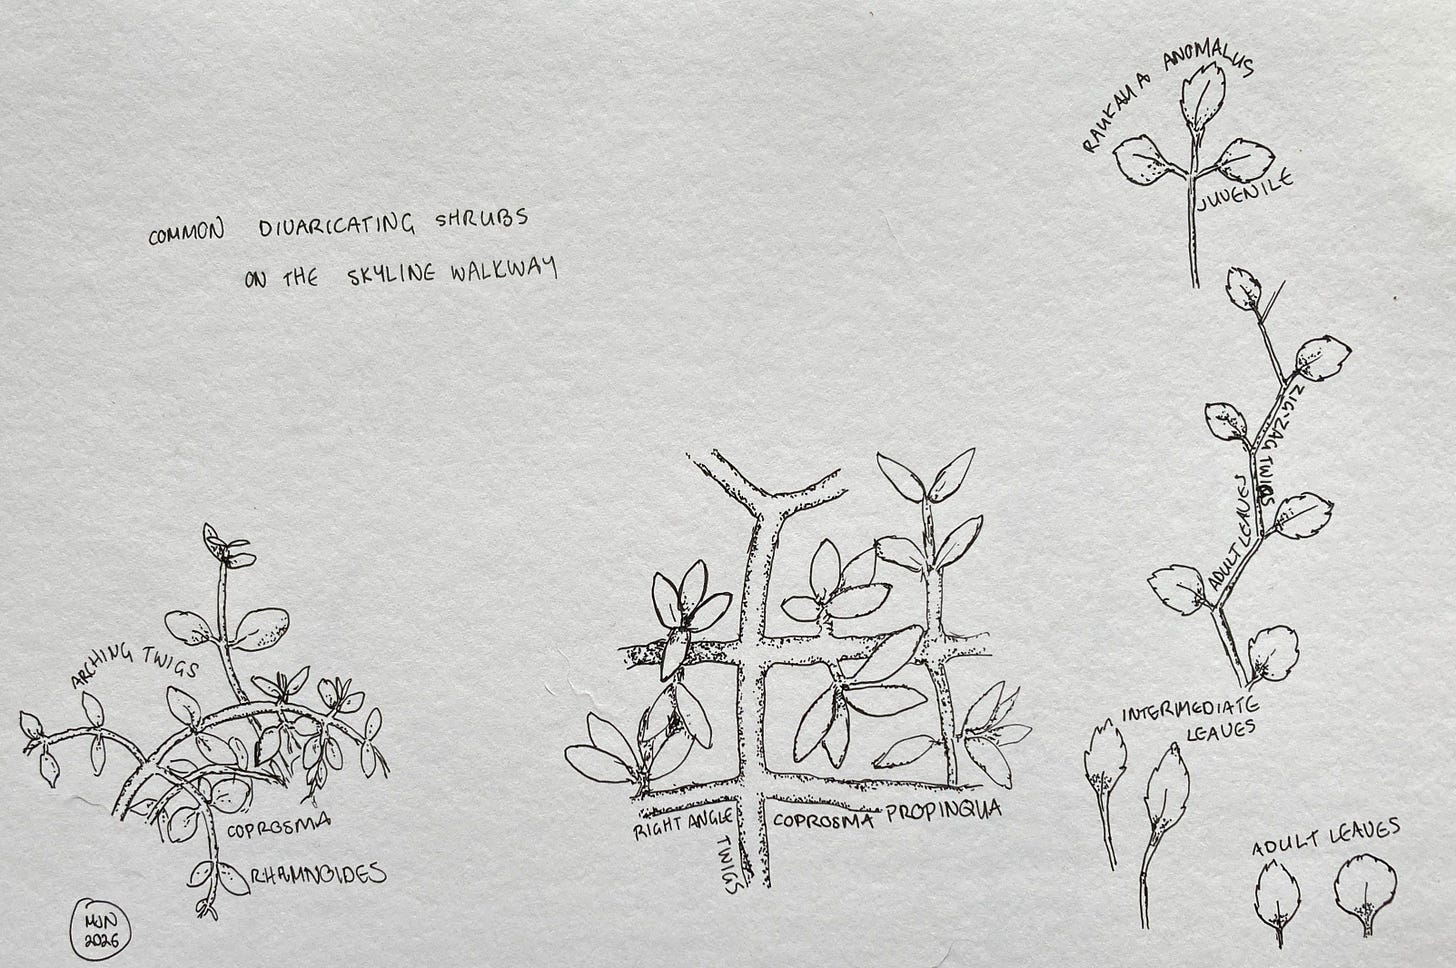 COMMON DIVARICATING SHRUBS
ON THE SKYLINE WALKWAY
RAUKAUA ANOMALUS
JUVENILE
ZIG-ZAG TWIGS
ADULT LEAVES
INTERMEDIATE
LEAVES
ADULT LEAVES
ARCHING TWIGS
COPROSMA
RHAMNOIDES
RIGHT ANGLE
TWIGS
COPROSMA PROPINQUA
MJN
2026